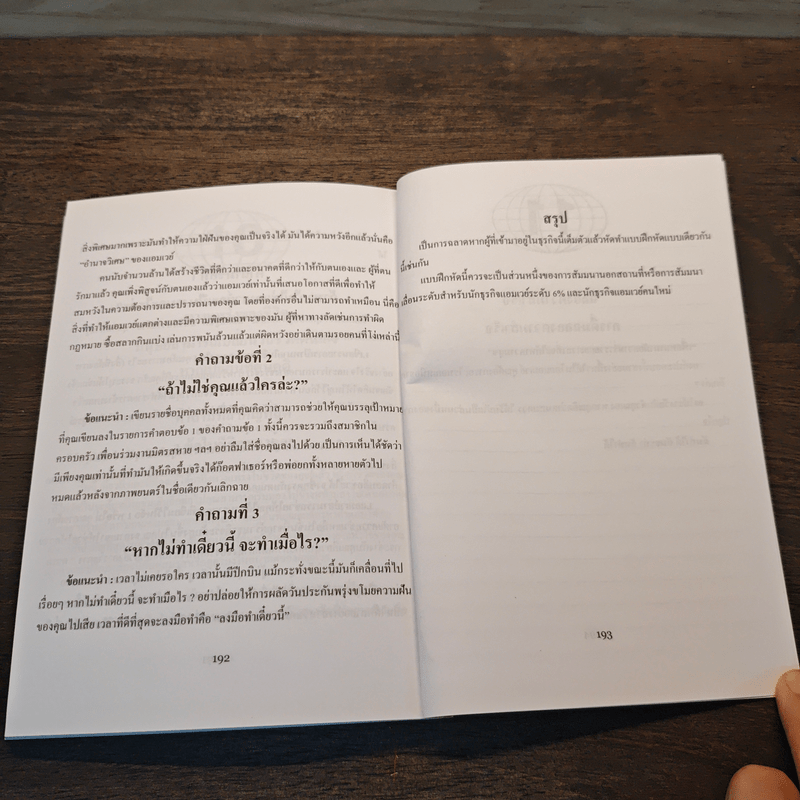 สิ่งพิเศษมากเพราะมันทำให้ความใฝ่ฝันของคุณเป็นจริงได้ มันได้ความหวังอีกแล้วนั่นคือ
"อำนาจวิเศษ" ของแอมเวย์
คนนับจำนวนล้านได้สร้างชีวิตที่ดีกว่าและอนาคตที่ดีกว่าให้กับตนเองและ ผู้ที่ตน
รักมาแล้ว คุณพึ่งพิสูจน์กับตนเองแล้วว่าแอมเวย์เท่านั้นที่เสนอโอกาสที่ดีเพื่อทำให้
สมหวังในความต้องการและปรารถนาของคุณ โดยที่องค์กรอื่นไม่สามารถทำเหมือน นี่คือ
สิ่งที่ทำให้แอมเวย์แตกต่างและมีความพิเศษเฉพาะของมัน ผู้ที่หาทางลัดเช่นการทำผิด
กฎหมาย ซื้อสลากกินแบ่ง เล่นการพนันล้วนแล้วแต่ผิดหวังอย่าเดินตามรอยคนที่โง่เหล่านี้
คำถามข้อที่ 2
"ถ้าไม่ใช่คุณแล้วใครล่ะ?"
ข้อแนะนำ : เขียนรายชื่อบุคคลทั้งหมดที่คุณคิดว่าสามารถช่วยให้คุณบรรลุเป้าหมาย
ที่คุณเขียนลงในรายการคำตอบข้อ 1 ของคำถามข้อ 1 ทั้งนี้ควรจะรวมถึงสมาชิกใน
ครอบครัว เพื่อนร่วมงานมิตรสหาย ฯลฯ อย่าลืมใส่ชื่อคุณลงไปด้วย เป็นการเห็นได้ชัดว่า
มีเพียงคุณเท่านั้นที่ทำมันให้เกิดขึ้นจริงได้ก๊อตฟาเธอร์หรือพ่อยกทั้งหลายหายตัวไป
หมดแล้วหลังจากภาพยนตร์ในชื่อเดียวกันเลิกฉาย
คำถามที่ 3
"หากไม่ทำเดี๋ยวนี้ จะทำเมื่อไร?"
ข้อแนะนำ : เวลาไม่เคยรอใคร เวลานั้นมีปีกบิน แม้กระทั่งขณะนี้มันก็เคลื่อนที่ไป
เรื่อยๆ หากไม่ทำเดี๋ยวนี้ จะทำเมื่อไร ? อย่าปล่อยให้การผลัดวันประกันพรุ่งขโมยความฝัน
ของคุณไปเสีย เวลาที่ดีที่สุดจะลงมือทำคือ "ลงมือทำเดี๋ยวนี้"
192
สรุป
เป็นการฉลาดหากผู้ที่เข้ามาอยู่ในธุรกิจนี้เต็มตัวแล้วหัดทำแบบฝึกหัดแบบเดียวกัน
นี้เช่นกัน
แบบฝึกหัดนี้ควรจะเป็นส่วนหนึ่งของการสัมมนานอกสถานที่หรือการสัมมนา
เลื่อนระดับสำหรับนักธุรกิจแอมเวย์ระดับ 6% และนักธุรกิจแอมเวย์คนใหม่
193